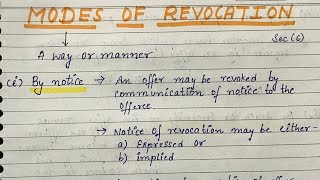 MODES OF REVOCATION
Sec (6)
A way or manner
(i) By notice → An offer may be revoked by
communication of notice to the
offeree.
→ Notice of revocation may be either-
a) Expressed or
b) implied